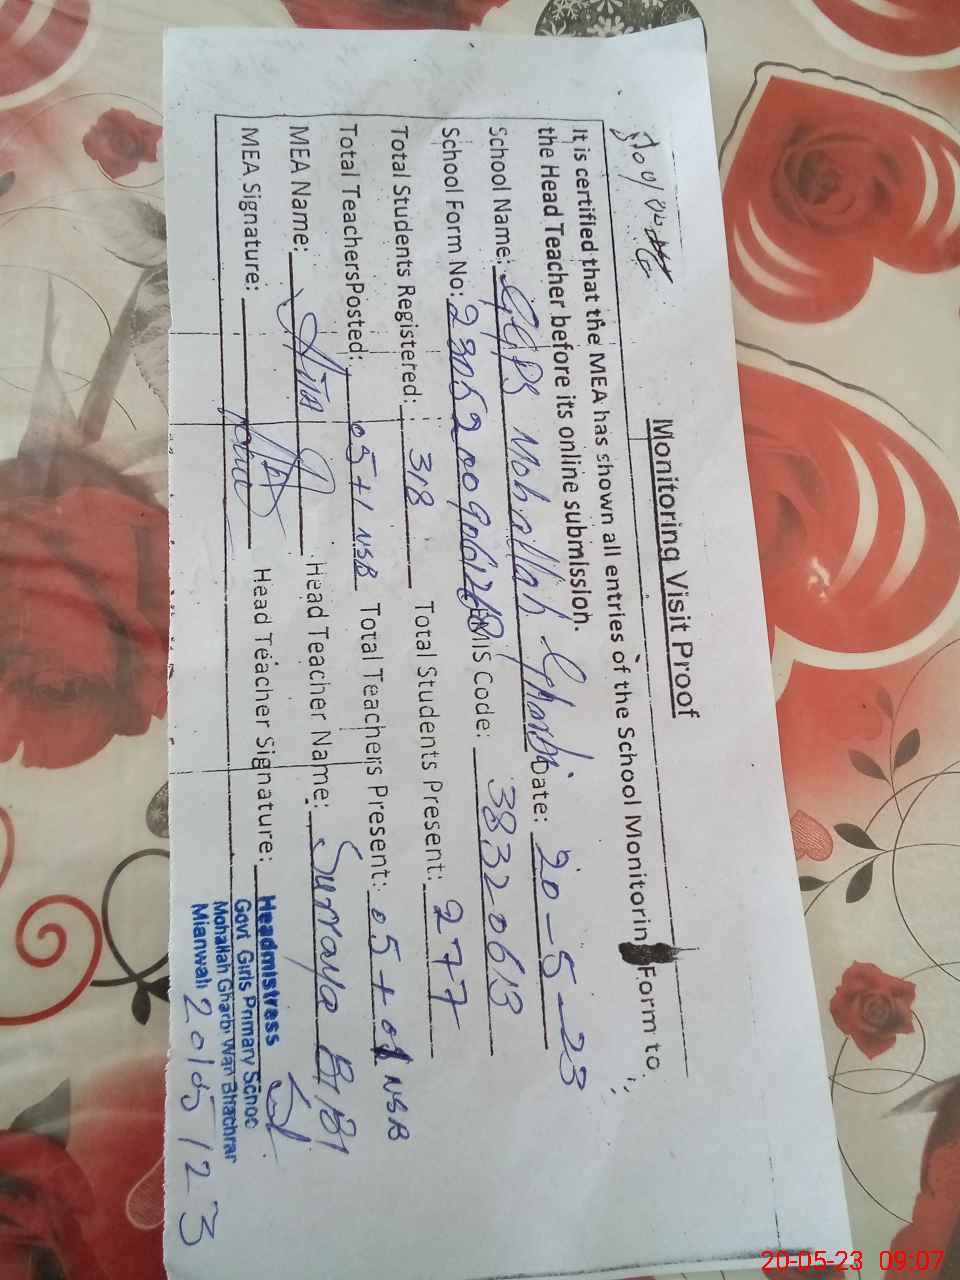 Monitoring Visit Proof
It is certified that the MEA has shown all entries of the School Monitorin Form to
the Head Teacher before its online submission.
School Name: GGPS Mohallah Gharbi Date: 20-5-23
School Form No: EMIS Code: 38320613
Total Students Registered: 318 Total Students Present: 277
Total TeachersPosted: 05+1 NSB Total Teachers Present: 05+01 NSB
MEA Name: Head Teacher Name: Surraya BiBi
MEA Signature: Head Teacher Signature:
Headmistress
Govt Girls Primary School
Mohallah Gharbi Wan Bhachran
Mianwali 20/05/23
20-05-23 09:07